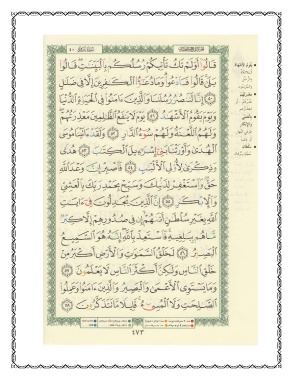 قَالُوٓا۟ أَوَلَمْ تَكُ تَأْتِيكُمْ رُسُلُكُم بِٱلْبَيِّنَٰتِ قَالُوا۟
بَلَىٰ قَالُوا۟ فَٱدْعُوا۟ وَمَا دُعَٰٓؤُا۟ ٱلْكَٰفِرِينَ إِلَّا فِى ضَلَٰلٍ
٥٠ إِنَّا لَنَنصُرُ رُسُلَنَا وَٱلَّذِينَ ءَامَنُوا۟ فِى ٱلْحَيَوٰةِ ٱلدُّنْيَا
وَيَوْمَ يَقُومُ ٱلْأَشْهَٰدُ ٥١ يَوْمَ لَا يَنفَعُ ٱلظَّٰلِمِينَ مَعْذِرَتُهُمْ
وَلَهُمُ ٱللَّعْنَةُ وَلَهُمْ سُوٓءُ ٱلدَّارِ ٥٢ وَلَقَدْ ءَاتَيْنَا مُوسَى
ٱلْهُدَىٰ وَأَوْرَثْنَا بَنِىٓ إِسْرَٰٓءِيلَ ٱلْكِتَٰبَ ٥٣ هُدًى
وَذِكْرَىٰ لِأُو۟لِى ٱلْأَلْبَٰبِ ٥٤ فَٱصْبِرْ إِنَّ وَعْدَ ٱللَّهِ
حَقٌّ وَٱسْتَغْفِرْ لِذَنۢبِكَ وَسَبِّحْ بِحَمْدِ رَبِّكَ بِٱلْعَشِىِّ
وَٱلْإِبْكَٰرِ ٥٥ إِنَّ ٱلَّذِينَ يُجَٰدِلُونَ فِىٓ ءَايَٰتِ
ٱللَّهِ بِغَيْرِ سُلْطَٰنٍ أَتَىٰهُمْ إِن فِى صُدُورِهِمْ إِلَّا كِبْرٌ
مَّا هُم بِبَٰلِغِيهِ فَٱسْتَعِذْ بِٱللَّهِ إِنَّهُۥ هُوَ ٱلسَّمِيعُ
ٱلْبَصِيرُ ٥٦ لَخَلْقُ ٱلسَّمَٰوَٰتِ وَٱلْأَرْضِ أَكْبَرُ مِنْ
خَلْقِ ٱلنَّاسِ وَلَٰكِنَّ أَكْثَرَ ٱلنَّاسِ لَا يَعْلَمُونَ ٥٧
وَمَا يَسْتَوِى ٱلْأَعْمَىٰ وَٱلْبَصِيرُ وَٱلَّذِينَ ءَامَنُوا۟ وَعَمِلُوا۟
ٱلصَّٰلِحَٰتِ وَلَا ٱلْمُسِىٓءُ قَلِيلًا مَّا تَتَذَكَّرُونَ ٥٨
٤٧٣